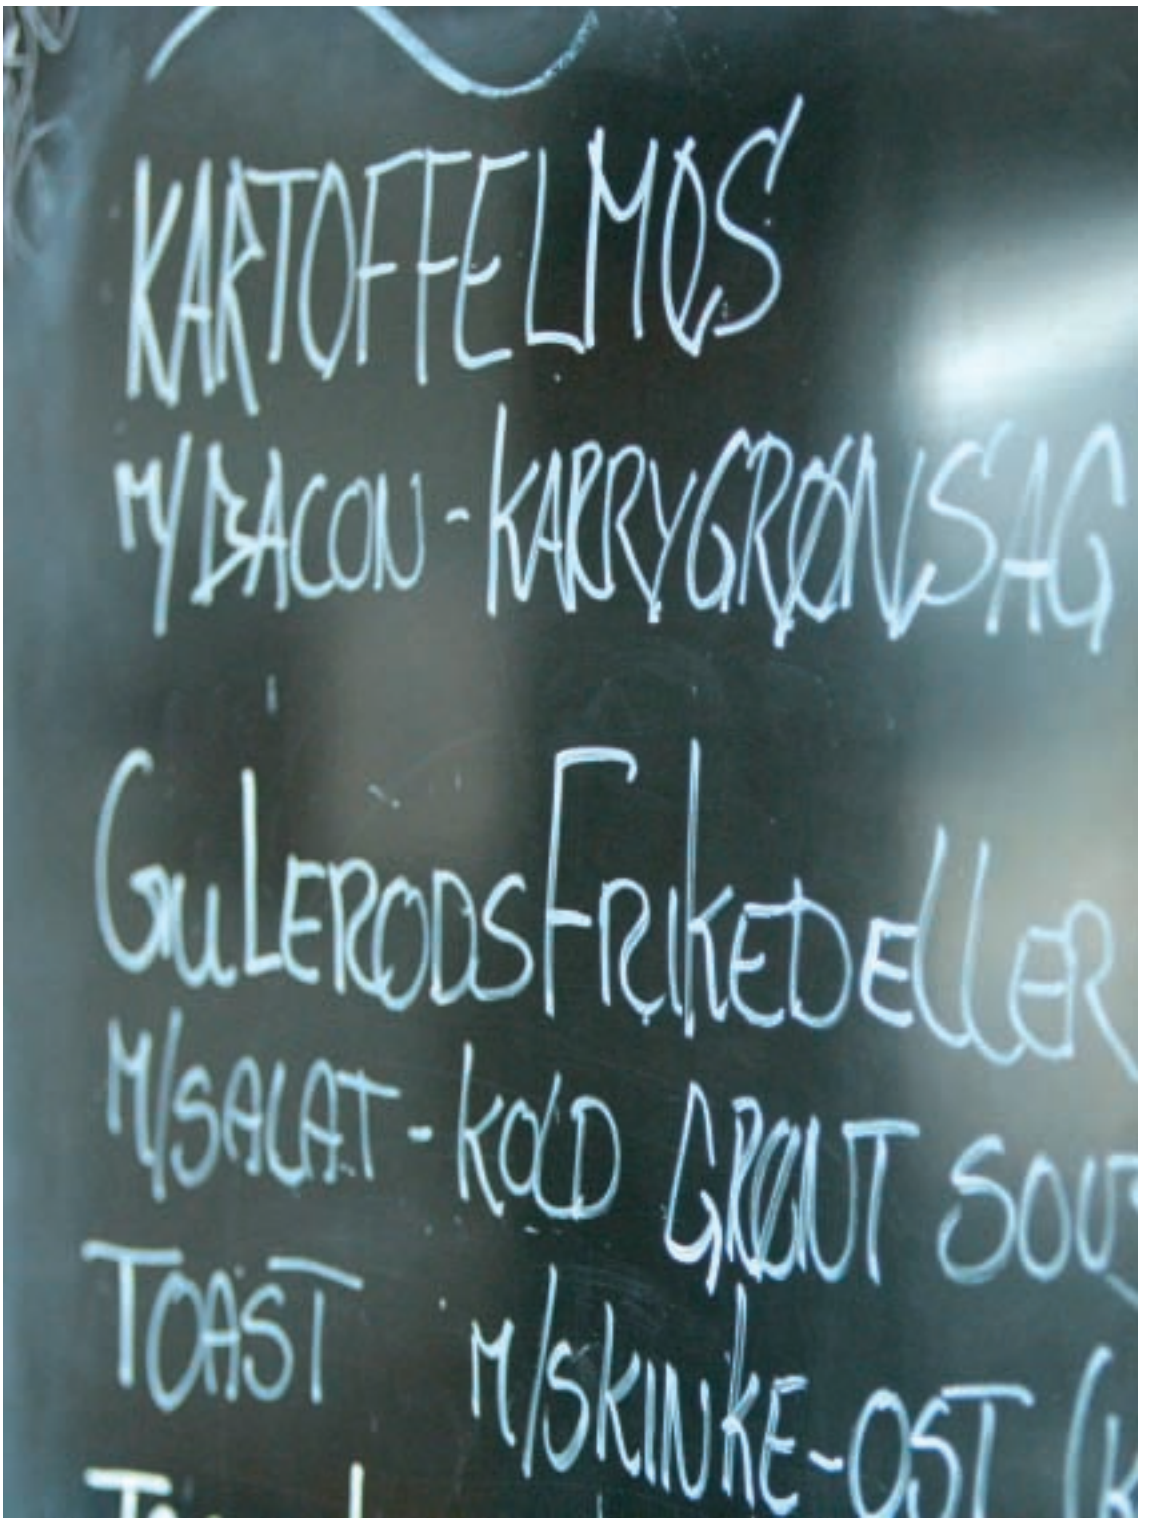 KARTOFFELMOS
M/BACON - KARRYGRØNSAG
GULERODSFRIKEDELLER
M/SALAT - KOLD GRØNT
TOAST M/SKINKE - OST